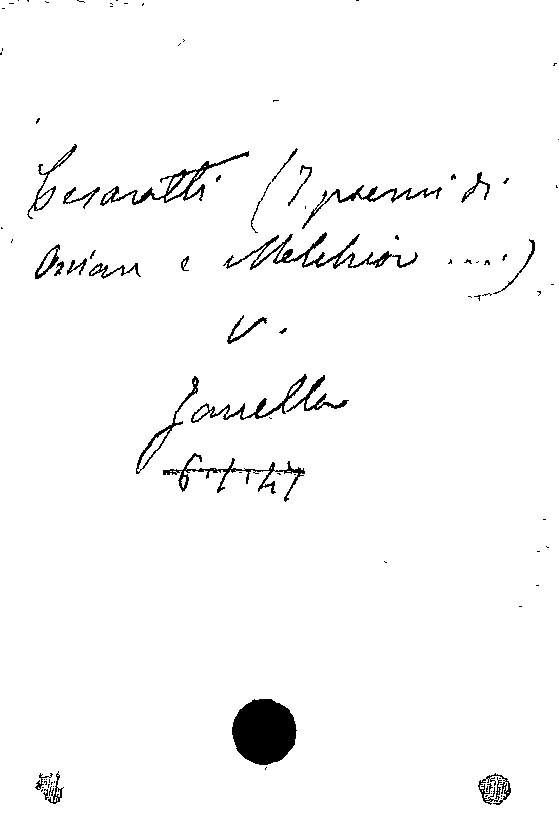 Cesarotti (I poemi di
Ossian e Melchior ....)
v.
Zanella
6.1.47